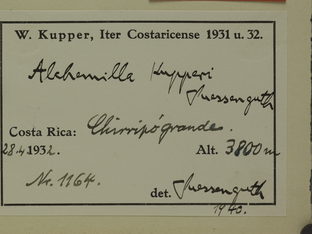 W. Kupper, Iter Costaricense 1931 u. 32.
Alchemilla Kupperi
Suessenguth
Costa Rica: Chirripó grande.
28.4.1932. Alt. 3800 m
Nr. 1164.
det. Suessenguth
1943.